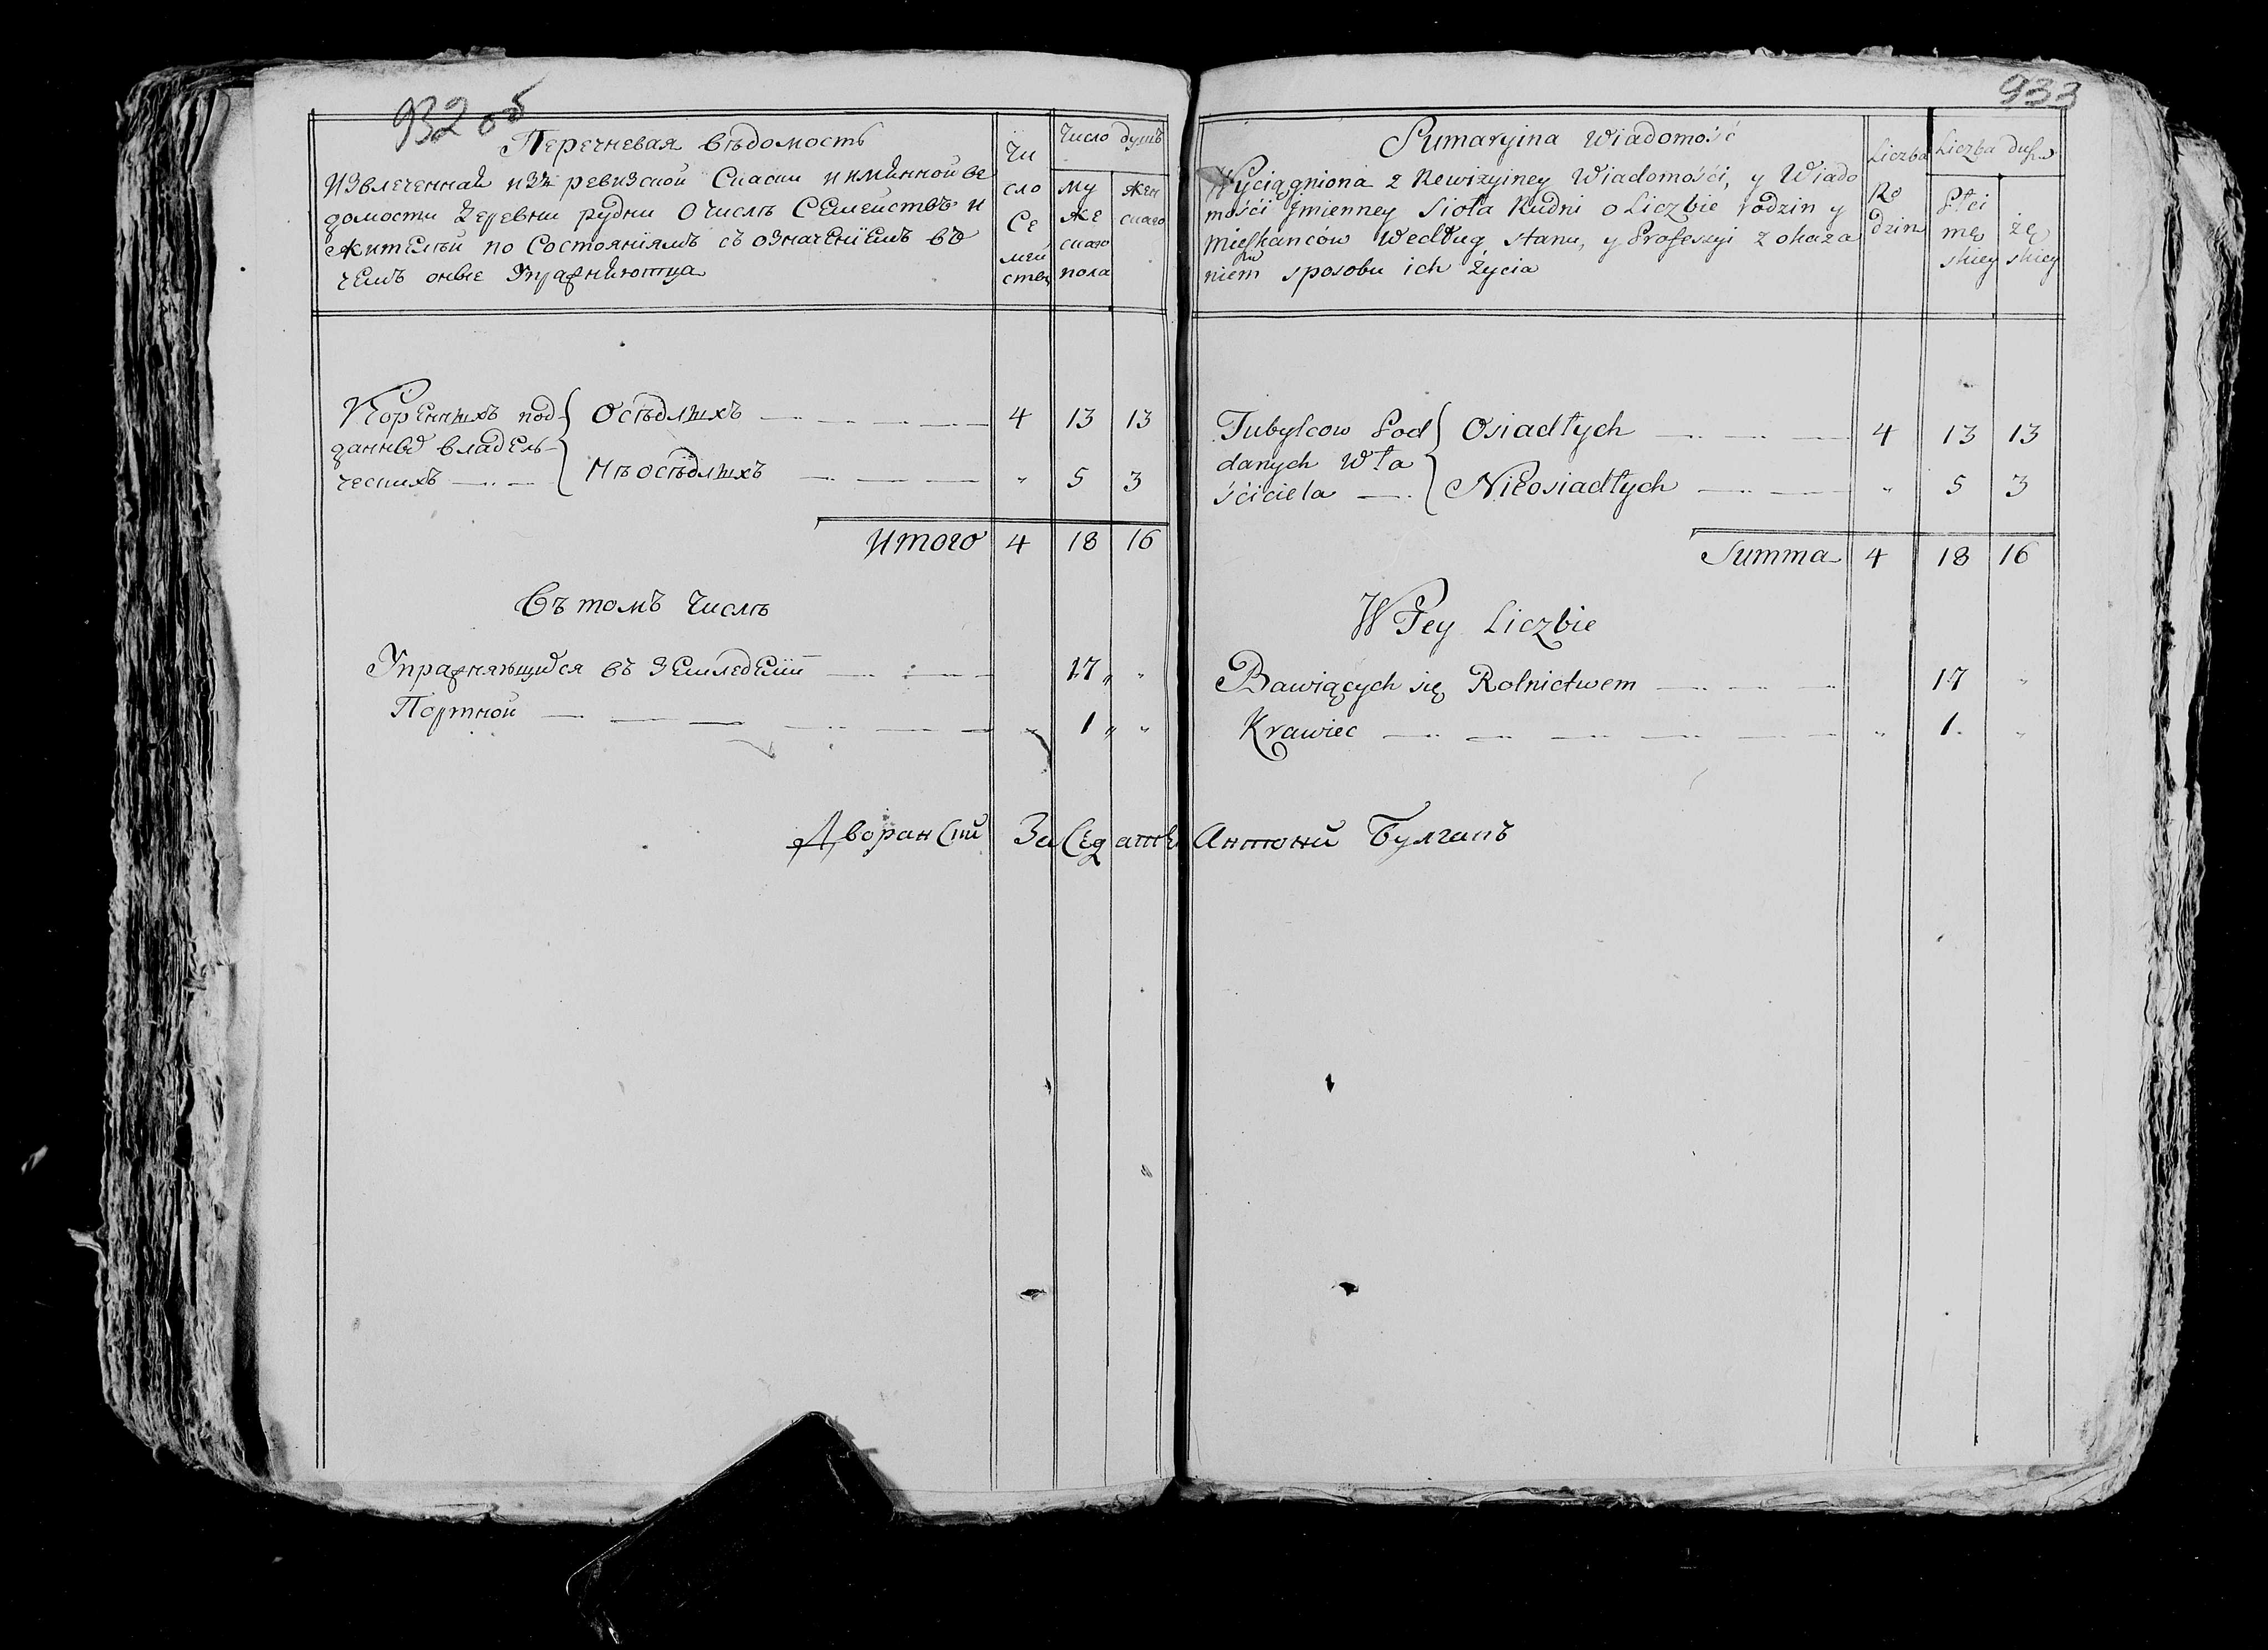 932 об
Перечневая вѣдомость
Извлеченная изъ ревизской Скаски и имянной ве
домости деревни рудни о числѣ Семействъ и
жителѣй по Состоянїямъ съ означенїемъ въ
чемъ оные Упражняютца
Чи
сло
Се
мей
ствъ
Число душъ
му
же
скаго
пола
жен
скаго
Коренныхъ под
данных владель
ческихъ
Осѣдлыхъ 4 13 13
Не осѣдлыхъ " 5 3
Итого 4 18 16
Въ томъ Числѣ
Упражняющихся въ Земледелїи 17 " "
Портной " 1 " "
Дворянский Заседатель Антоний Булгакъ
933
Sumaryina Wiadomość
Wyciągniona z Rewizyiney Wiadomośći, y Wiado
mośći Jmienney Sioła Rudni o Liczbie rodzin y
Mieszkanców Według stanu, y Professyi z okaza
niem sposobu ich Życia
Liczba
Ro
dzin
Liczba dusz
Płci
mę
skiey
żę
skiey
Tubylcow Pod
danych Wła
śćiciela
Osiadłych 4 13 13
Nieosiadłych " 5 3
Summa 4 18 16
W Tey Liczbie
Bawiących się Rolnictwem 17 "
Krawiec " 1 "